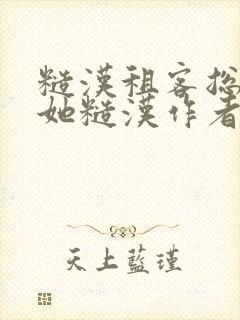 糙漢租客总
她糙漢作者
天上藍瑾